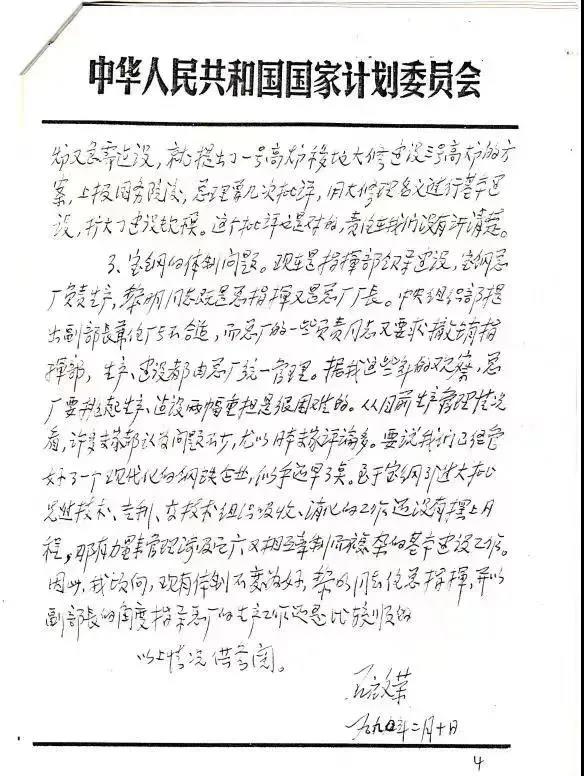 中华人民共和国国家计划委员会
炉又急需建设，就提出了一号高炉移地大修建设三号高炉的方
案，上报国务院后，总理第几次批评，用大修理名义进行基本建
设，扩大了建设规模。这个批评是对的，责任在我们没有讲清楚。
3、宝钢的体制问题。现在是指挥部领导建设，宝钢总
厂负责生产，黎明同志既是总指挥又是总厂厂长。中央组织部提
出副部长兼任厂长不合适，而总厂的一些负责同志又要求撤销指
挥部，生产、建设都由总厂统一管理。据我这些年的观察，总
厂要挑起生产、建设两幅重担是很困难的。从目前生产管理情况
看，许多专家都认为问题不少，尤以日本专家评论多。要说我们已经管
好了一个现代化的钢铁企业，似乎还早了点。至于宝钢引进大批
先进技术、专利、在技术组织吸收、消化的工作还没有摆上日
程，那有力量来管理涉及面广又相互牵制而复杂的基本建设工作。
因此，我倾向，现有体制不变为好，黎明同志任总指挥，并以
副部长的角度指导总厂的生产工作还是比较顺的
以上情况供参阅。
石启荣
一九九〇年二月十日
4